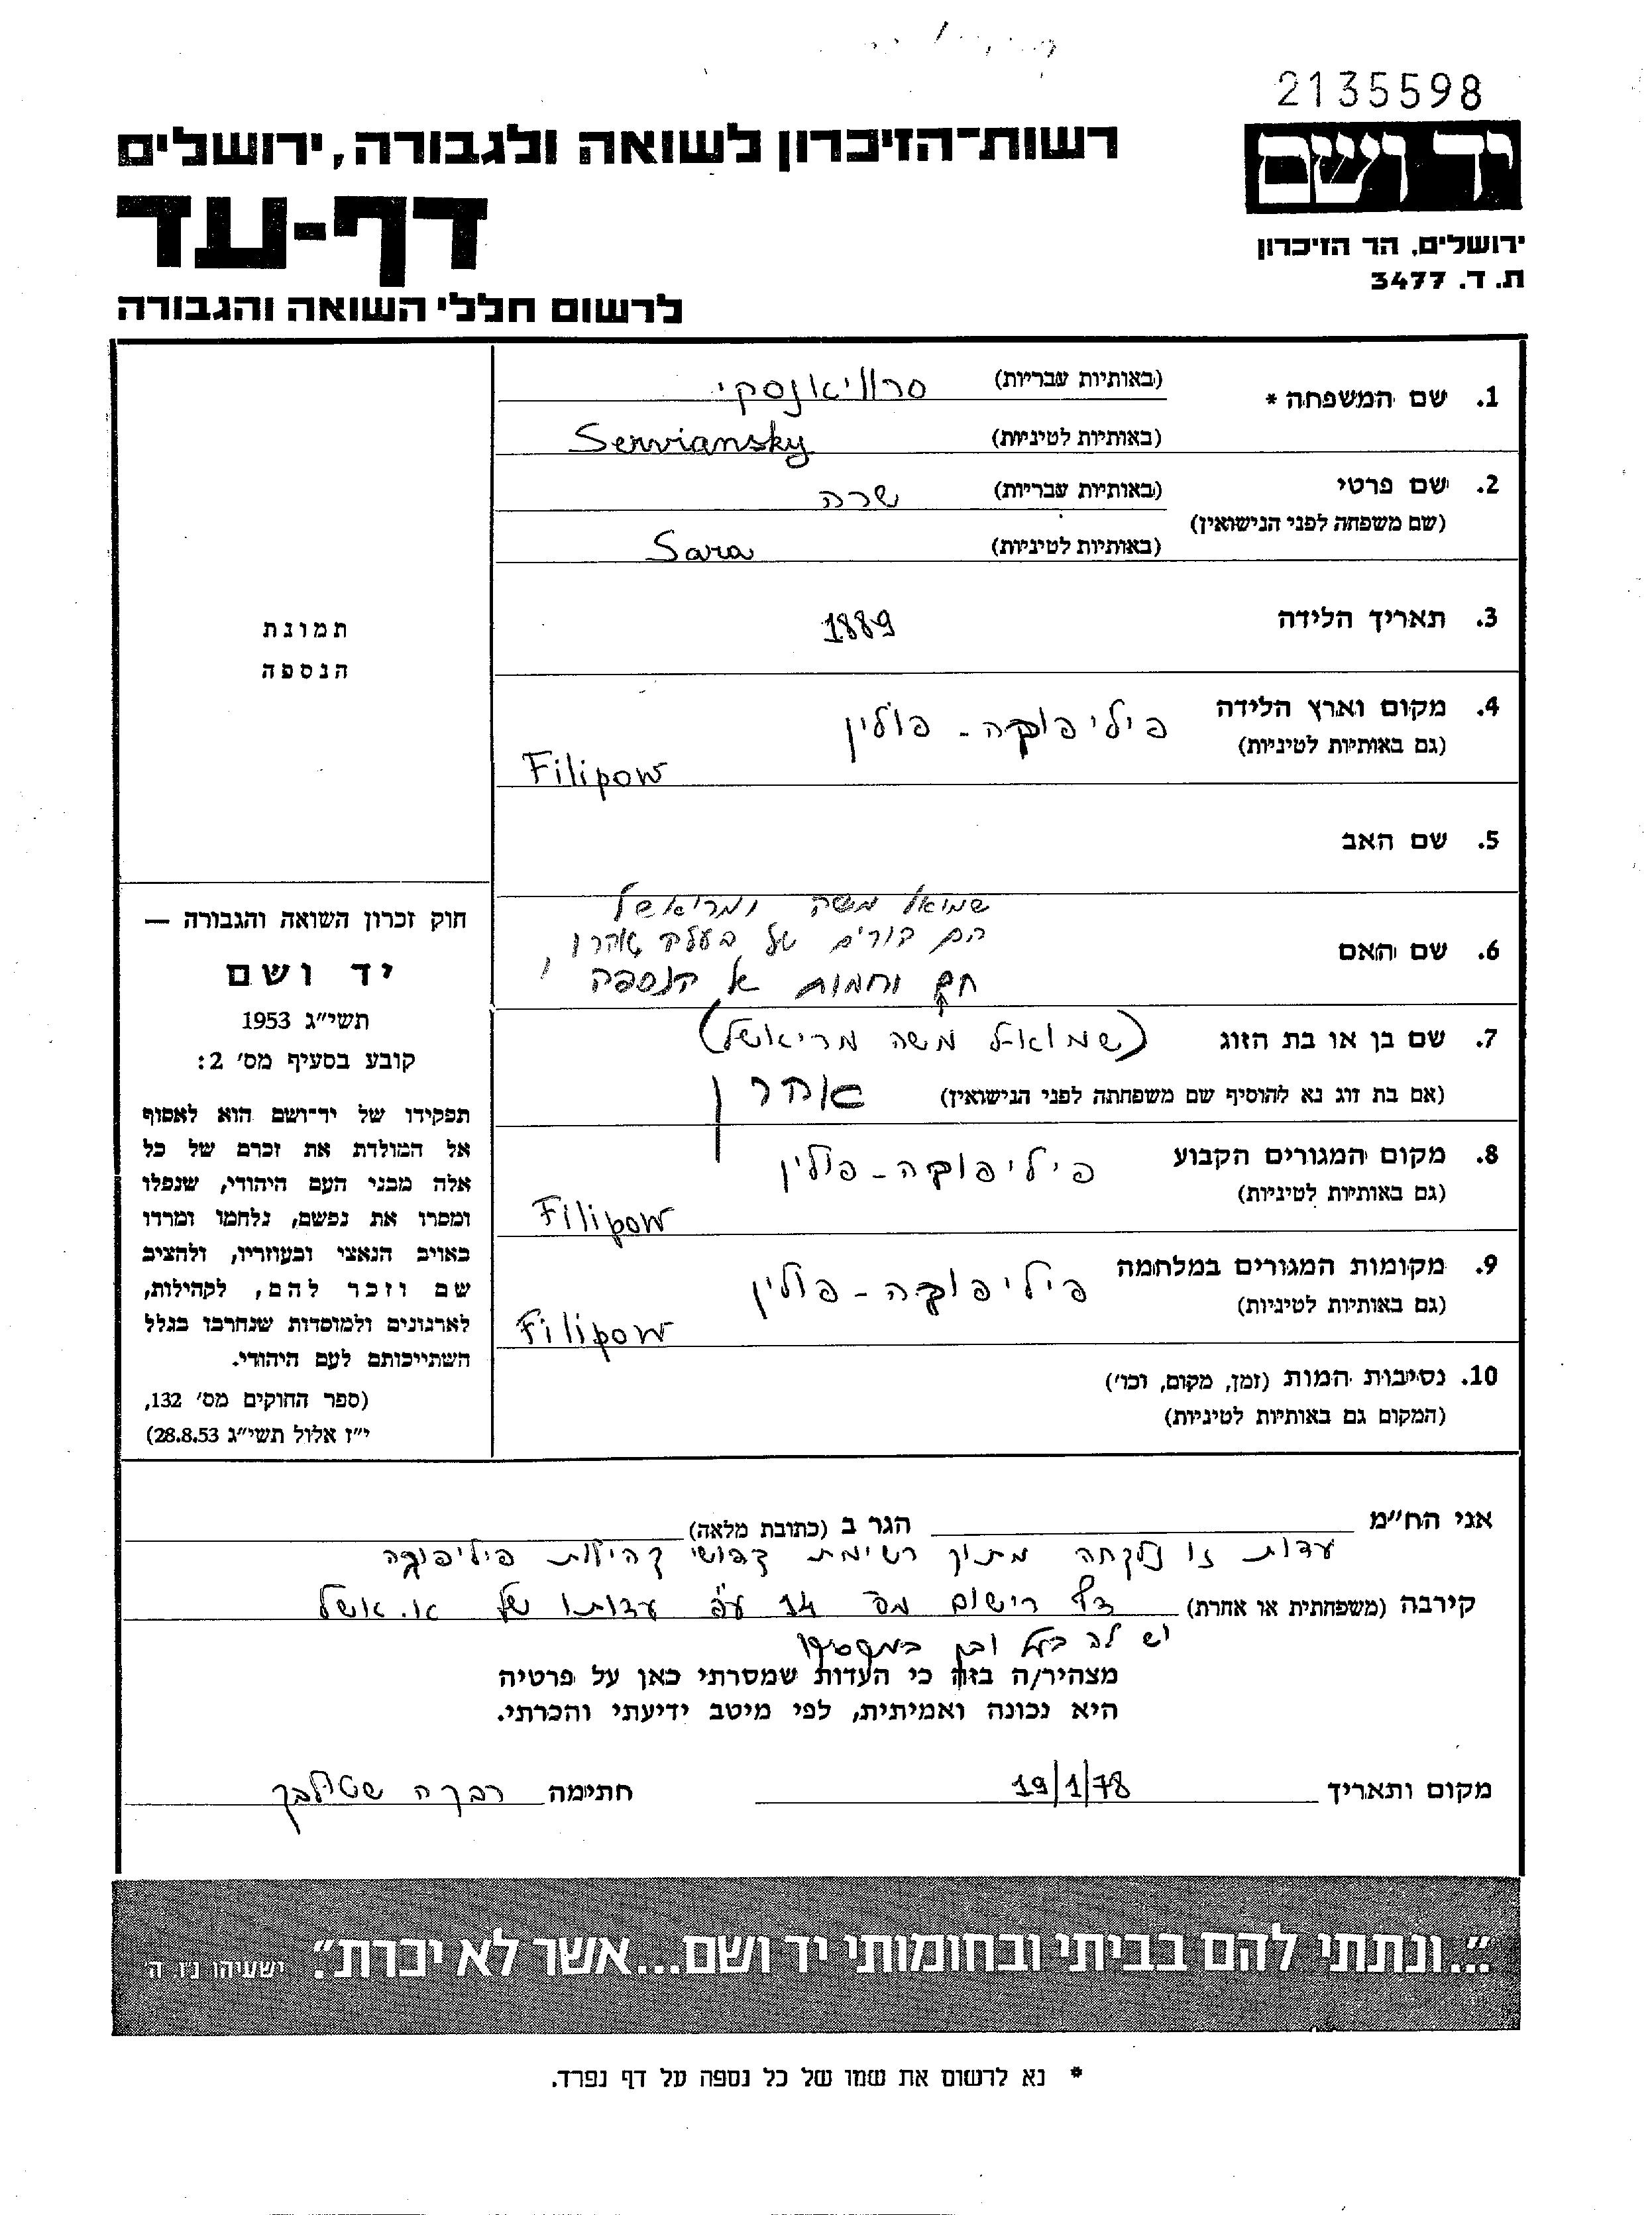 2135598
יד ושם
ירושלים, הר הזיכרון
ת. ד. 3477
רשות-הזיכרון לשואה ולגבורה, ירושלים
דף-עד
לרשום חללי השואה והגבורה
1. שם המשפחה * (באותיות עבריות) סרוויאנסקי
(באותיות לטיניות) Serviansky
2. שם פרטי (באותיות עבריות) שרה
(שם משפחה לפני הנישואין)
(באותיות לטיניות) Sara
3. תאריך הלידה 1889
4. מקום וארץ הלידה פיליפובקה - פולין
(גם באותיות לטיניות) Filipow
5. שם האב
שמואל משה ומריאשל
הם הורים של בעלה אהרן
6. שם האם
חם וחמות הנספה
7. שם בן או בת הזוג (שמואל משה מריאשל)
(אם בת זוג נא להוסיף שם משפחתה לפני הנישואין) אהרן
8. מקום המגורים הקבוע פיליפובקה - פולין
(גם באותיות לטיניות) Filipow
9. מקומות המגורים במלחמה פיליפובקה - פולין
(גם באותיות לטיניות) Filipow
10. נסיבות המות (זמן, מקום, וכו')
(המקום גם באותיות לטיניות)
תמונת
הנספה
חוק זכרון השואה והגבורה —
יד ושם
תשי״ג 1953
קובע בסעיף מס' 2:
תפקידו של יד־ושם הוא לאסוף
אל המולדת את זכרם של כל
אלה מבני העם היהודי, שנפלו
ומסרו את נפשם, נלחמו ומרדו
באויב הנאצי ובעוזריו, ולהציב
שם וזכר להם, לקהילות,
לארגונים ולמוסדות שנחרבו בגלל
השתייכותם לעם היהודי.
(ספר החוקים מס' 132,
י״ז אלול תשי״ג 28.8.53)
אני הח״מ הגר ב (כתובת מלאה)
עדות זו נלקחה מתוך רשימת קדושי קהילות פיליפובקה
קירבה (משפחתית או אחרת) דף רישום מס 14 עפ עדותו של או. אשל
יש לה בעל ובן במקסיקו
מצהיר/ה בזה כי העדות שמסרתי כאן על פרטיה
היא נכונה ואמיתית, לפי מיטב ידיעתי והכרתי.
מקום ותאריך 19/1/78 חתימה רבקה
״...ונתתי להם בביתי ובחומותי יד ושם...אשר לא יכרת״. ישעיהו נ״ו, ה'
* נא לרשום את שמו של כל נספה על דף נפרד.